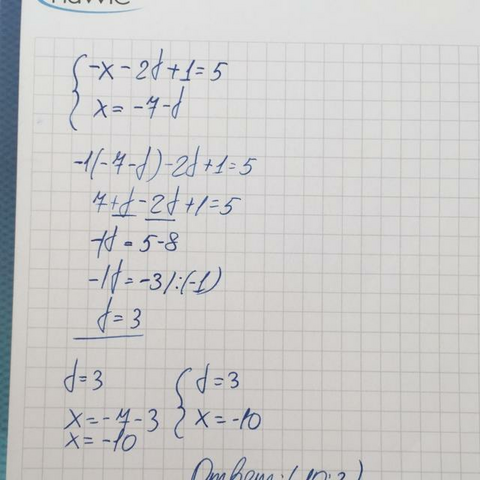 -x - 2y + 1 = 5
x = -7 - y
-1(-7 - y) - 2y + 1 = 5
7 + y - 2y + 1 = 5
-1y = 5 - 8
-1y = -3 /:(-1)
y = 3
y = 3
x = -7 - 3
x = -10
y = 3
x = -10
Ответ: (-10; 3)